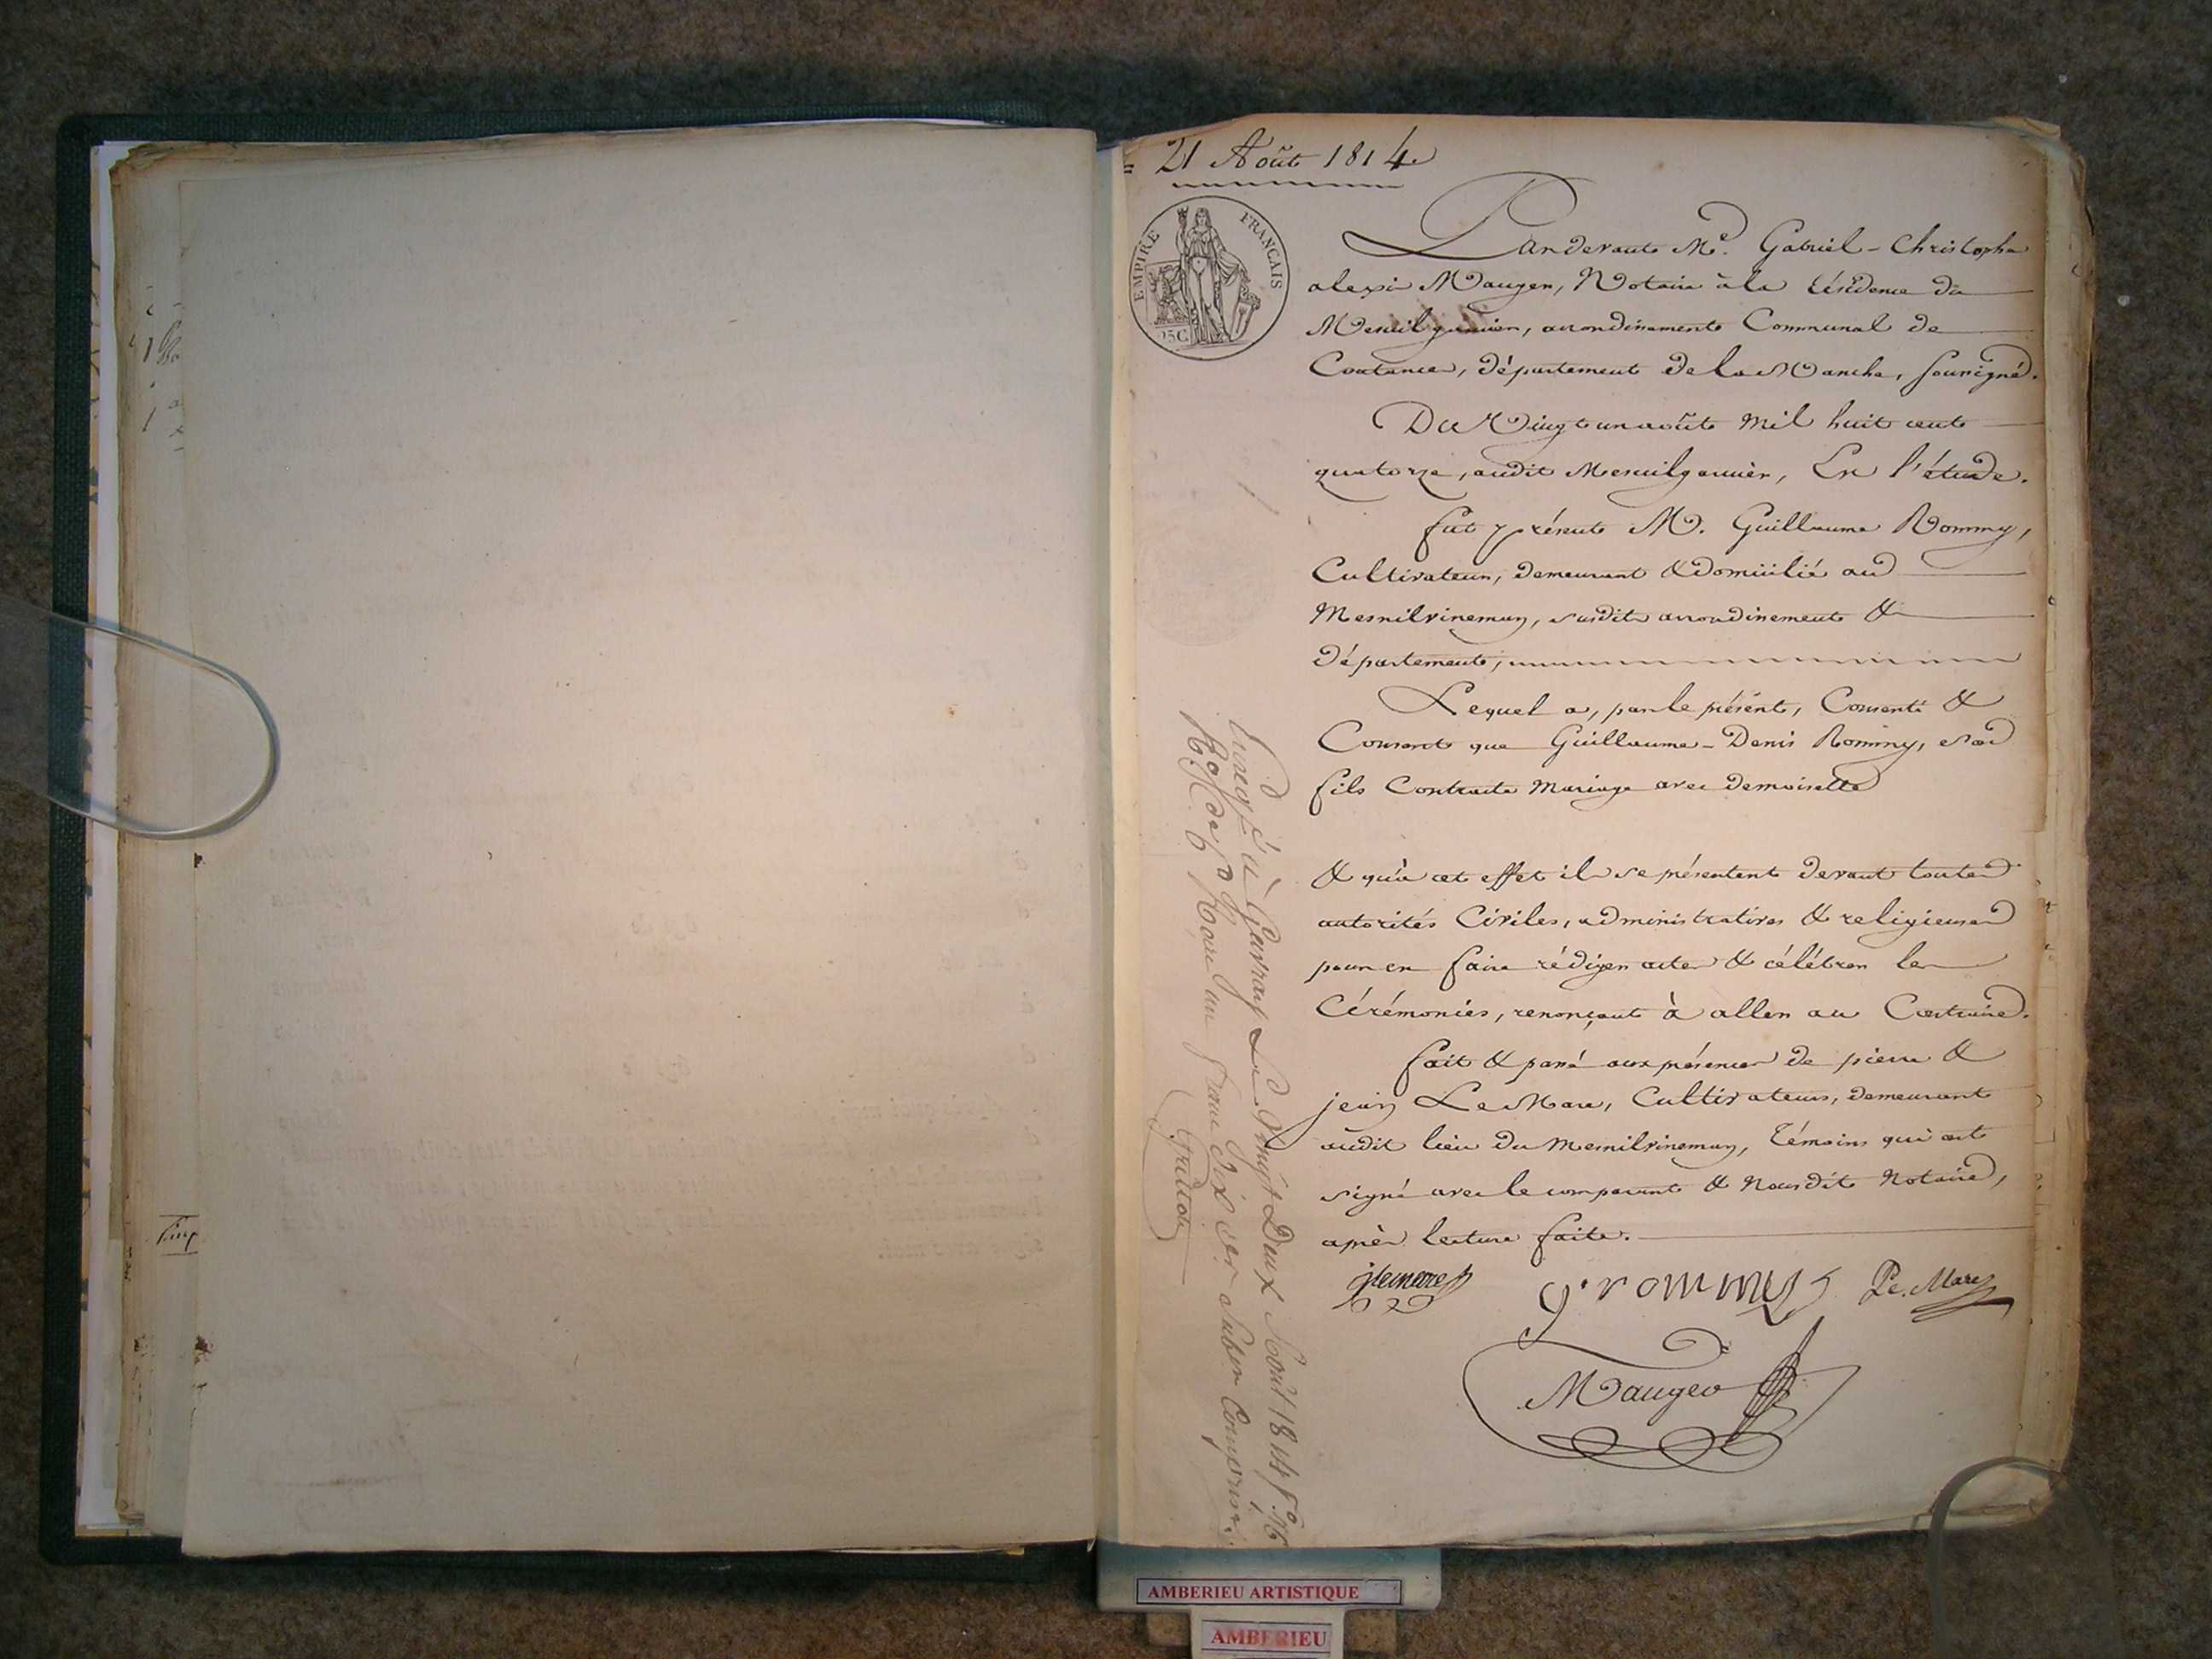 21 Août 1814
EMPIRE FRANÇAIS
25C
Pardevant Me. Gabriel-Christophe
alexis Mauger, Notaire à la résidence du
Mesnilgarnier, arrondissement Communal de
Coutances, département de la Manche, soussigné.
Du Vingt un août mil huit cent
quatorze, audit Mesnilgarnier, En l'étude.
fut présent M. Guillaume Rommy,
Cultivateur, demeurant & domicilié au
Mesnilvineman, susdits arrondissement &
département,
Lequel a, par le présent, Consenti &
Consent que Guillaume-Denis Rommy, son
fils Contracte Mariage avec demoiselle
& qu'à cet effet ils se présentent devant toutes
autorités Civiles, administratives & religieuses
pour en faire rédiger actes & célébrer les
Cérémonies, renonçant à aller au Contraire.
fait & passé aux présences de pierre &
jean Le Mare, Cultivateurs, demeurant
audit lieu du Mesnilvineman, témoins qui ont
signé avec le comparant & Nousdit Notaire,
après lecture faite.
jlemare
g. rommy
Pe. Mare
Mauger
Enregé à Gavray Le Vingt Deux Août 1814 fo. 76
Ro. Ce. de 5 à 6 Reçu un franc dix ces. subon Compris.
AMBERIEU ARTISTIQUE
AMBERIEU